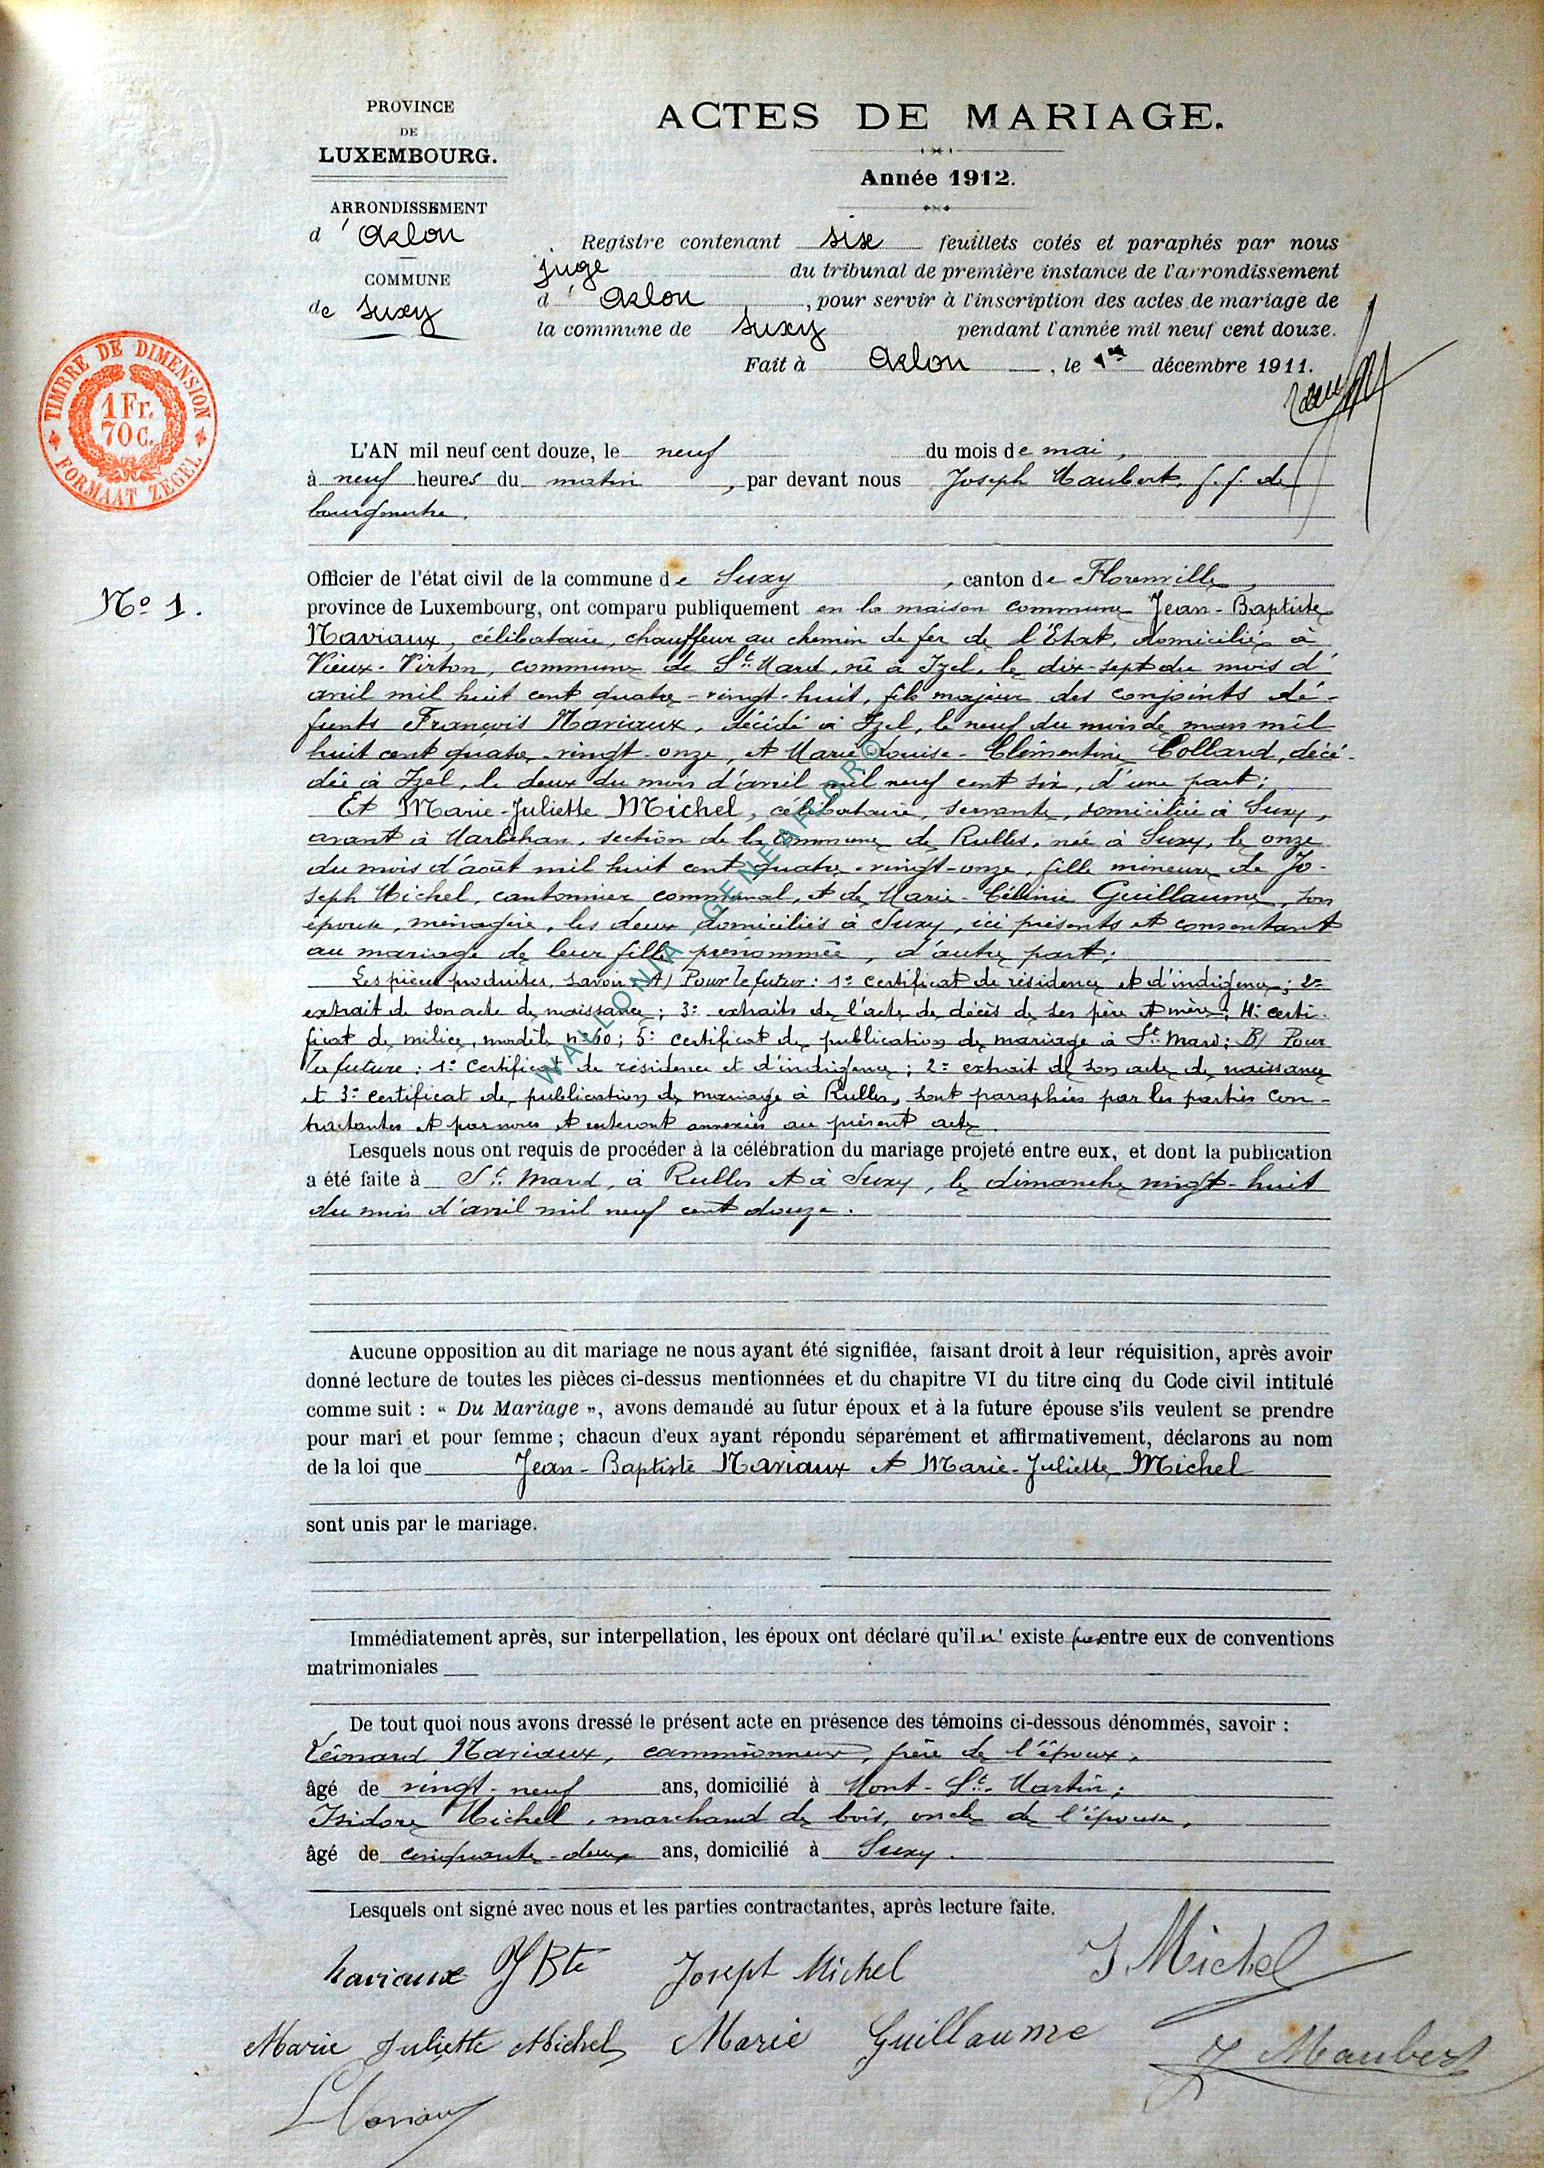 PROVINCE
DE
LUXEMBOURG.
ARRONDISSEMENT
d'Arlon
COMMUNE
de Suxy
ACTES DE MARIAGE.
Année 1912.
Registre contenant six feuillets cotés et paraphés par nous
juge du tribunal de première instance de l'arrondissement
d'Arlon, pour servir à l'inscription des actes de mariage de
la commune de Suxy pendant l'année mil neuf cent douze.
Fait à Arlon, le 1er décembre 1911.
TIMBRE DE DIMENSION
1 Fr.
70 C.
FORMAAT ZEGEL
L'AN mil neuf cent douze, le neuf du mois de mai,
à neuf heures du matin, par devant nous Joseph Maubert, f. f. de
bourgmestre.
Officier de l'état civil de la commune de Suxy, canton de Florenville,
Nº 1.
province de Luxembourg, ont comparu publiquement en la maison commune Jean-Baptiste
Naviaux, célibataire, chauffeur au chemin de fer de l'Etat, domicilié à
Vieux-Virton, commune de St. Mard, né à Izel, le dix-sept du mois d'
avril mil huit cent quatre-vingt-huit, fils majeur des conjoints dé-
funts François Naviaux, décédé à Izel, le neuf du mois de mars mil
huit cent quatre-vingt-onze, et Marie-Louise-Clémentine Collard, décé-
dée à Izel, le deux du mois d'avril mil neuf cent six, d'une part;
Et Marie-Juliette Michel, célibataire, servante, domiciliée à Suxy,
avant à Marbehan, section de la commune de Rulles, née à Suxy, le onze
du mois d'août mil huit cent quatre-vingt-onze, fille mineure de Jo-
seph Michel, cantonnier communal, et de Marie-Célinie Guillaume, son
épouse, ménagère, les deux domiciliés à Suxy, ici présents et consentant
au mariage de leur fille prénommée, d'autre part;
Les pièces produites, savoir: A) Pour le futur: 1º certificat de résidence et d'indigence; 2º
extrait de son acte de naissance; 3º extraits de l'acte de décès de ses père et mère; 4º certi-
ficat de milice, modèle nº 60; 5º certificat de publication de mariage à St. Mard; B) Pour
la future: 1º certificat de résidence et d'indigence; 2º extrait de son acte de naissance
et 3º certificat de publication de mariage à Rulles, sont paraphées par les parties con-
tractantes et par nous et resteront annexées au présent acte.
Lesquels nous ont requis de procéder à la célébration du mariage projeté entre eux, et dont la publication
a été faite à St. Mard, à Rulles et à Suxy, le dimanche vingt-huit
du mois d'avril mil neuf cent douze.
Aucune opposition au dit mariage ne nous ayant été signifiée, faisant droit à leur réquisition, après avoir
donné lecture de toutes les pièces ci-dessus mentionnées et du chapitre VI du titre cinq du Code civil intitulé
comme suit : « Du Mariage », avons demandé au futur époux et à la future épouse s'ils veulent se prendre
pour mari et pour femme ; chacun d'eux ayant répondu séparément et affirmativement, déclarons au nom
de la loi que Jean-Baptiste Naviaux et Marie-Juliette Michel
sont unis par le mariage.
Immédiatement après, sur interpellation, les époux ont déclaré qu'il n'existe pas entre eux de conventions
matrimoniales
De tout quoi nous avons dressé le présent acte en présence des témoins ci-dessous dénommés, savoir :
Léonard Naviaux, camionneur, frère de l'époux,
âgé de vingt-neuf ans, domicilié à Mont-St.-Martin;
Isidore Michel, marchand de bois, oncle de l'épouse,
âgé de cinquante-deux ans, domicilié à Suxy.
Lesquels ont signé avec nous et les parties contractantes, après lecture faite.
Naviaux JBte Joseph Michel I. Michel
Marie Juliette Michel Marie Guillaume J Maubert
L Naviaux
WALLONIA - GENEAFLOR©